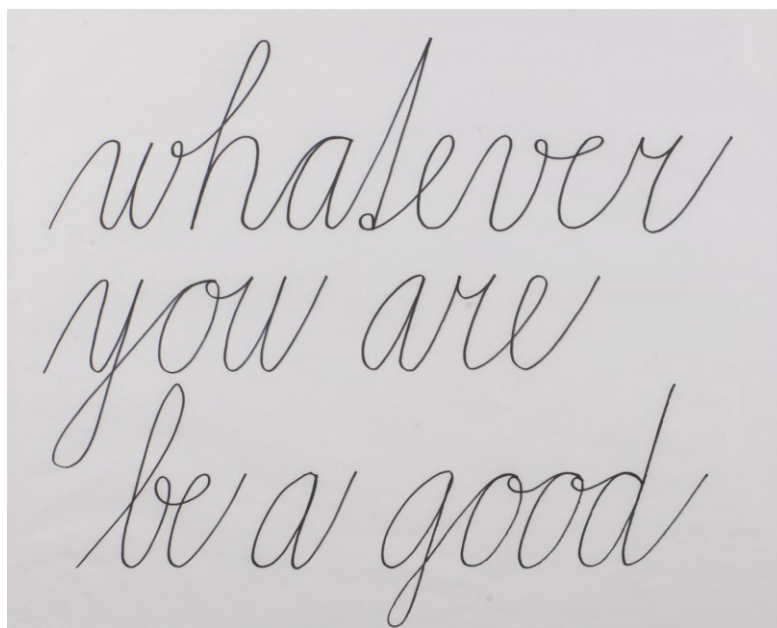 whatever
you are
be a good